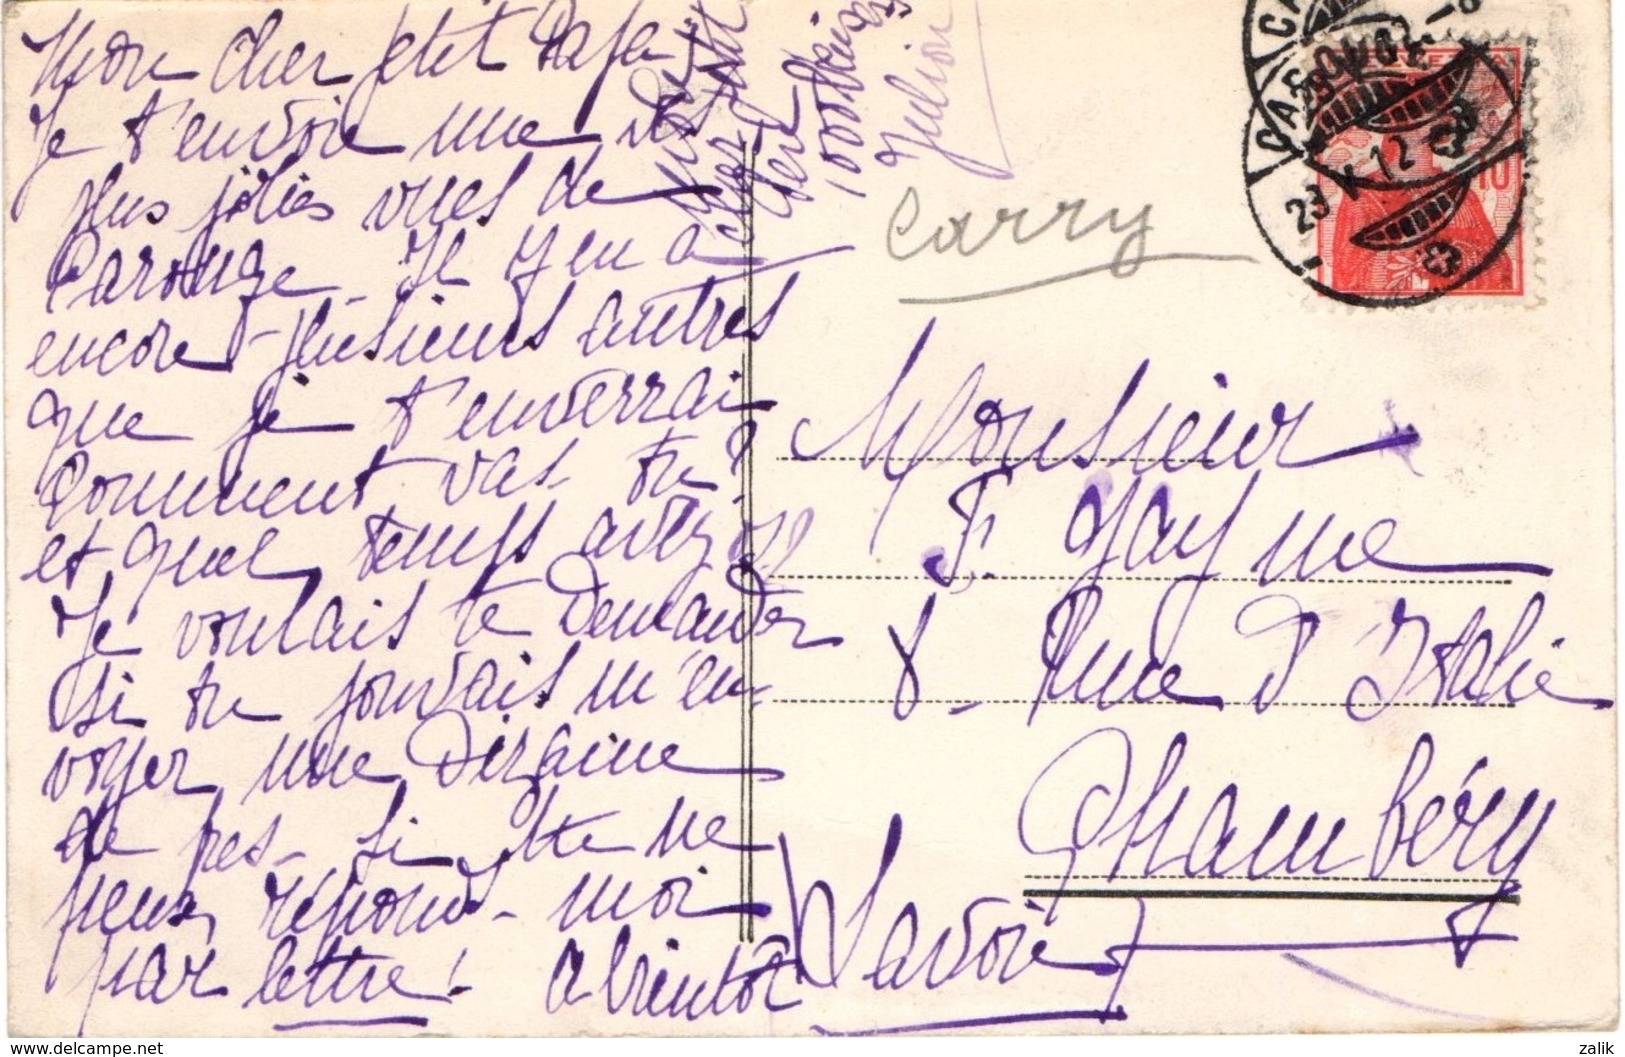 Mon cher petit Papa
Je t'envoie une des
plus jolies vues de
Carouge. Il y en a
encore plusieurs autres
que je t'enverrai
Comment vas-tu?
et quel temps avez
Je voulais te demander
si tu pouvais m'en-
voyer une dizaine
de frs - si tu ne
peux, réponds-moi
par lettre! A bientôt
1000 baisers
Julien
Carry
Monsieur
F. Jayme
8 - Rue d'Italie
Chambéry
Savoie
CAROUGE
23 X 12
10
www.delcampe.net
zalik